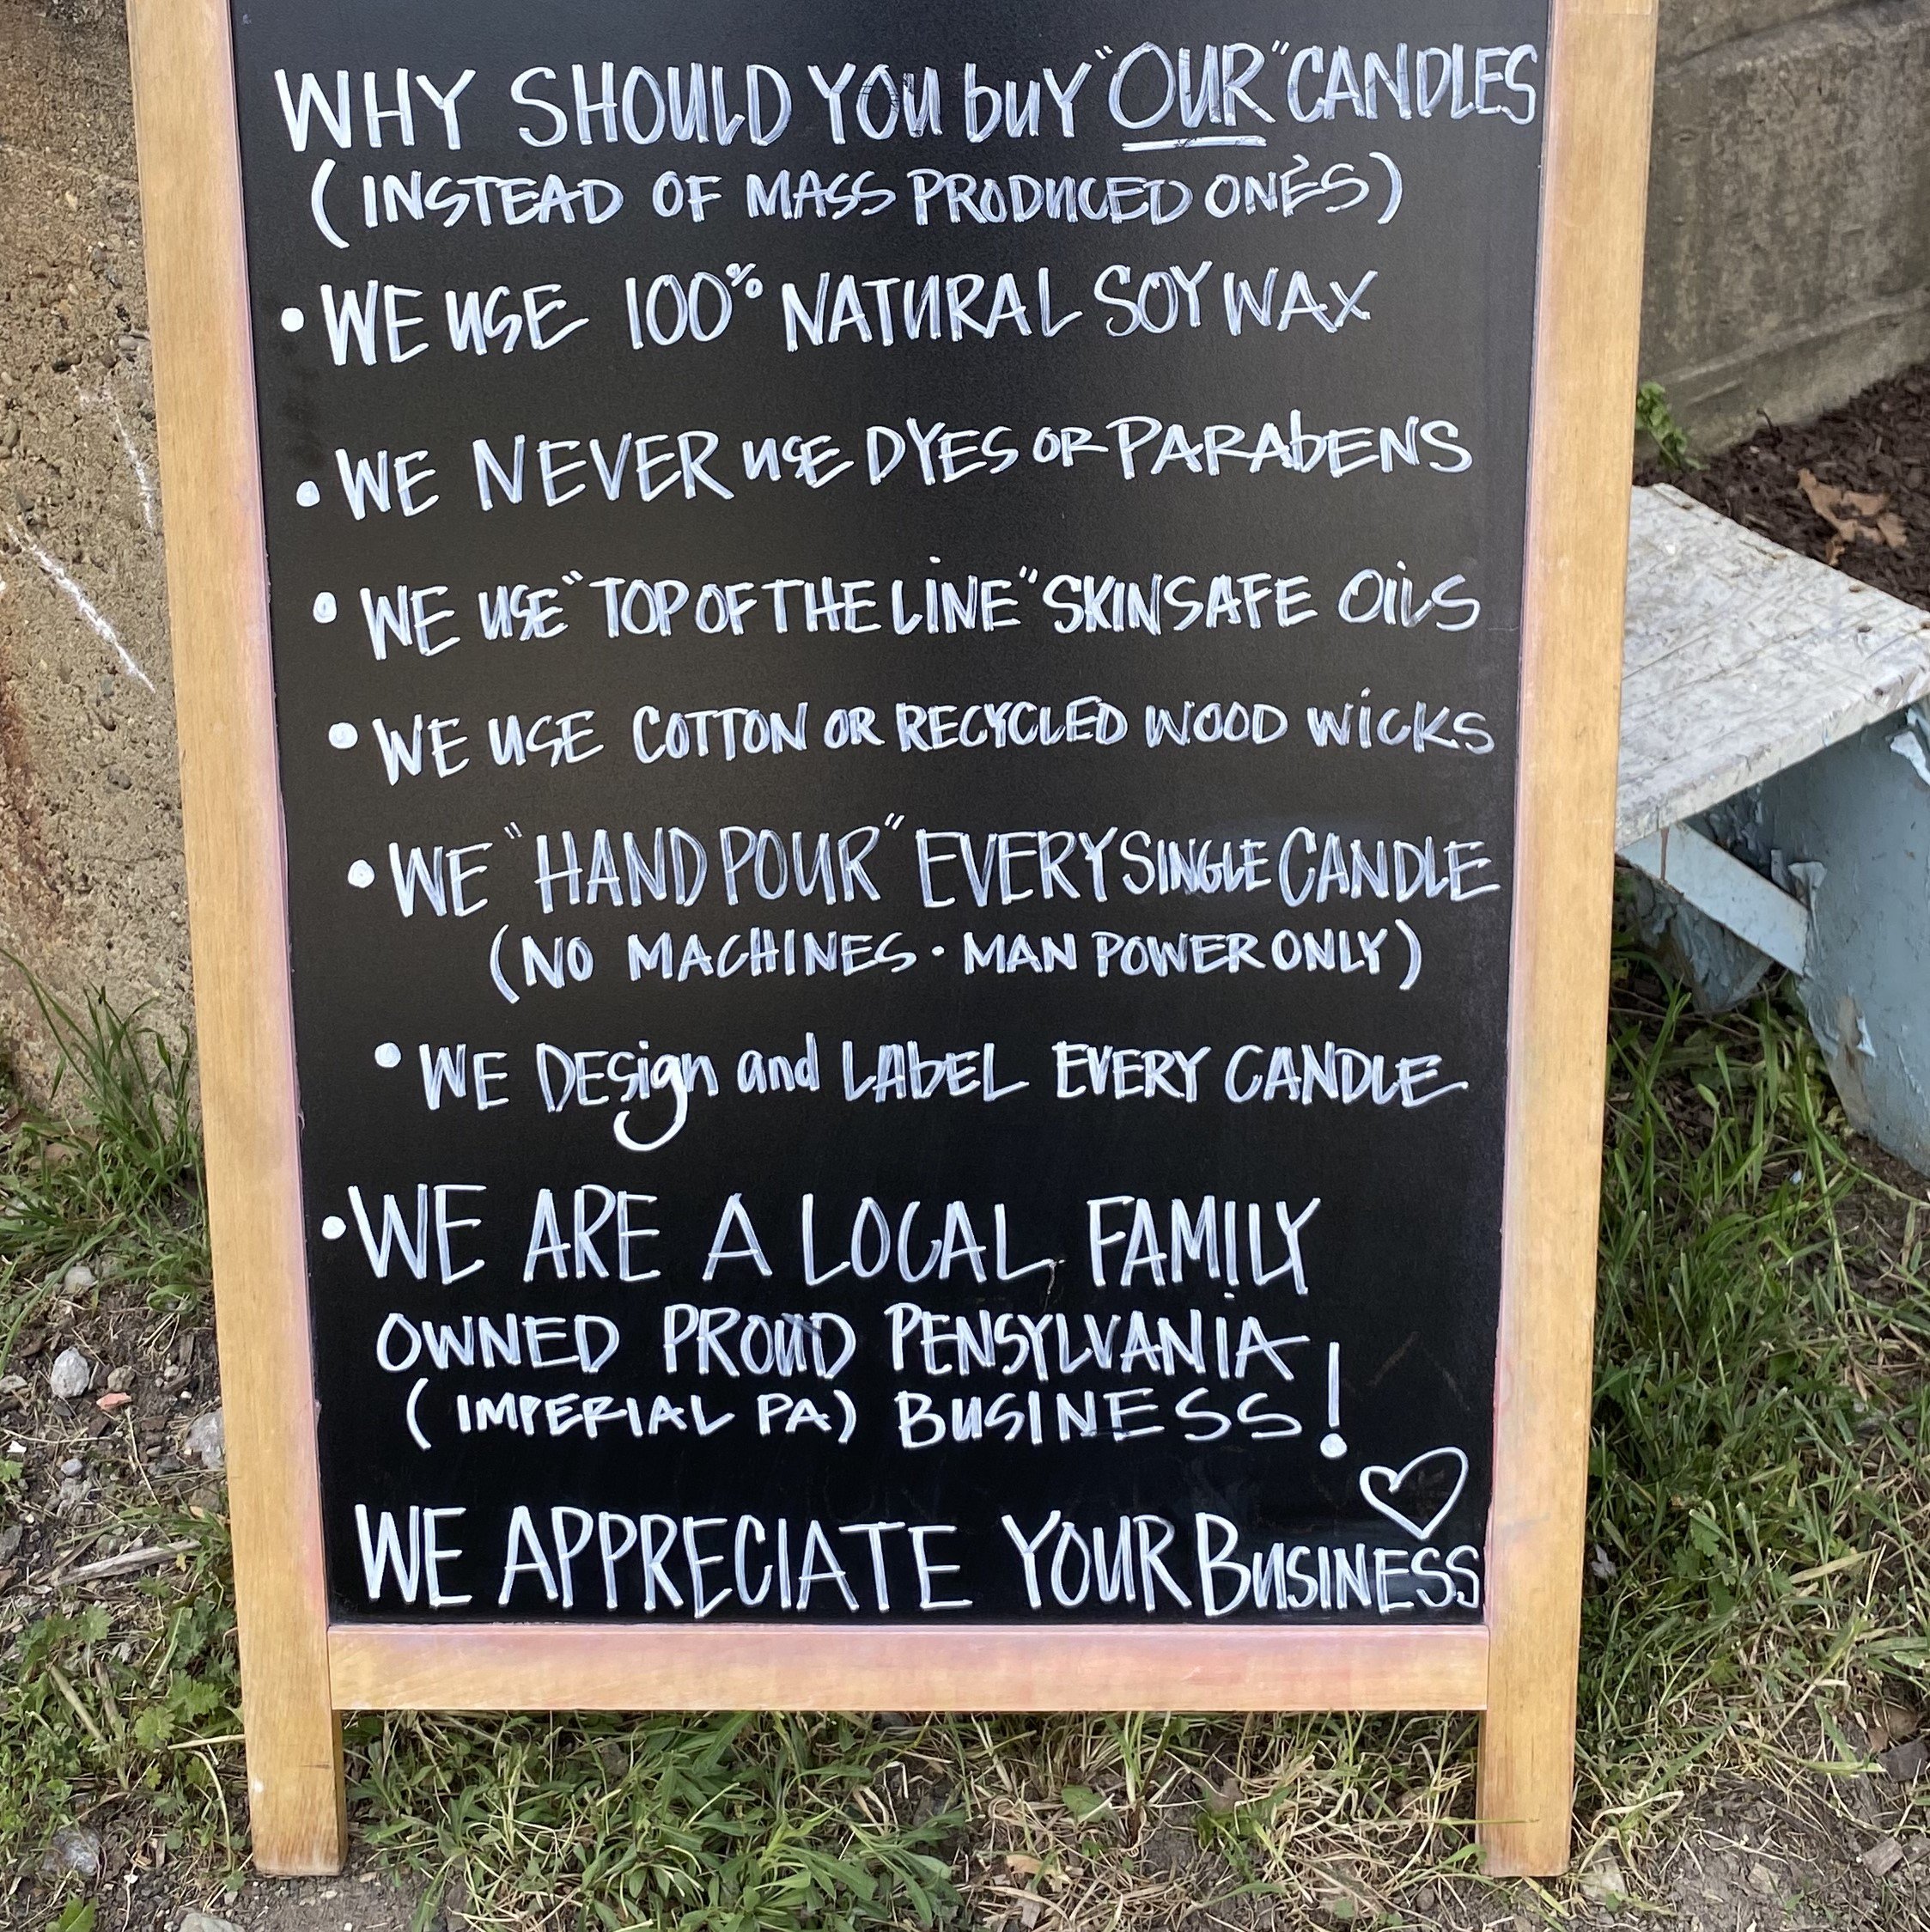 WHY SHOULD YOU buY "OUR" CANDLES
(INSTEAD OF MASS PRODUCED ONE'S)
• WE USE 100% NATURAL SOY WAX
• WE NEVER USE DYES OR PARAbENS
• WE USE "TOP OF THE LINE" SKIN SAFE OiLS
• WE USE COTTON OR RECYCLED WOOD WiCKS
• WE "HAND POUR" EVERY SINGLE CANDLE
(NO MACHINES • MAN POWER ONLY)
• WE DESign and LAbEL EVERY CANDLE
• WE ARE A LOCAL FAMILY
OWNED PROUD PENSYLVANiA
(IMPERIAL PA) BUSINESS!
WE APPRECIATE YOUR BUSINESS